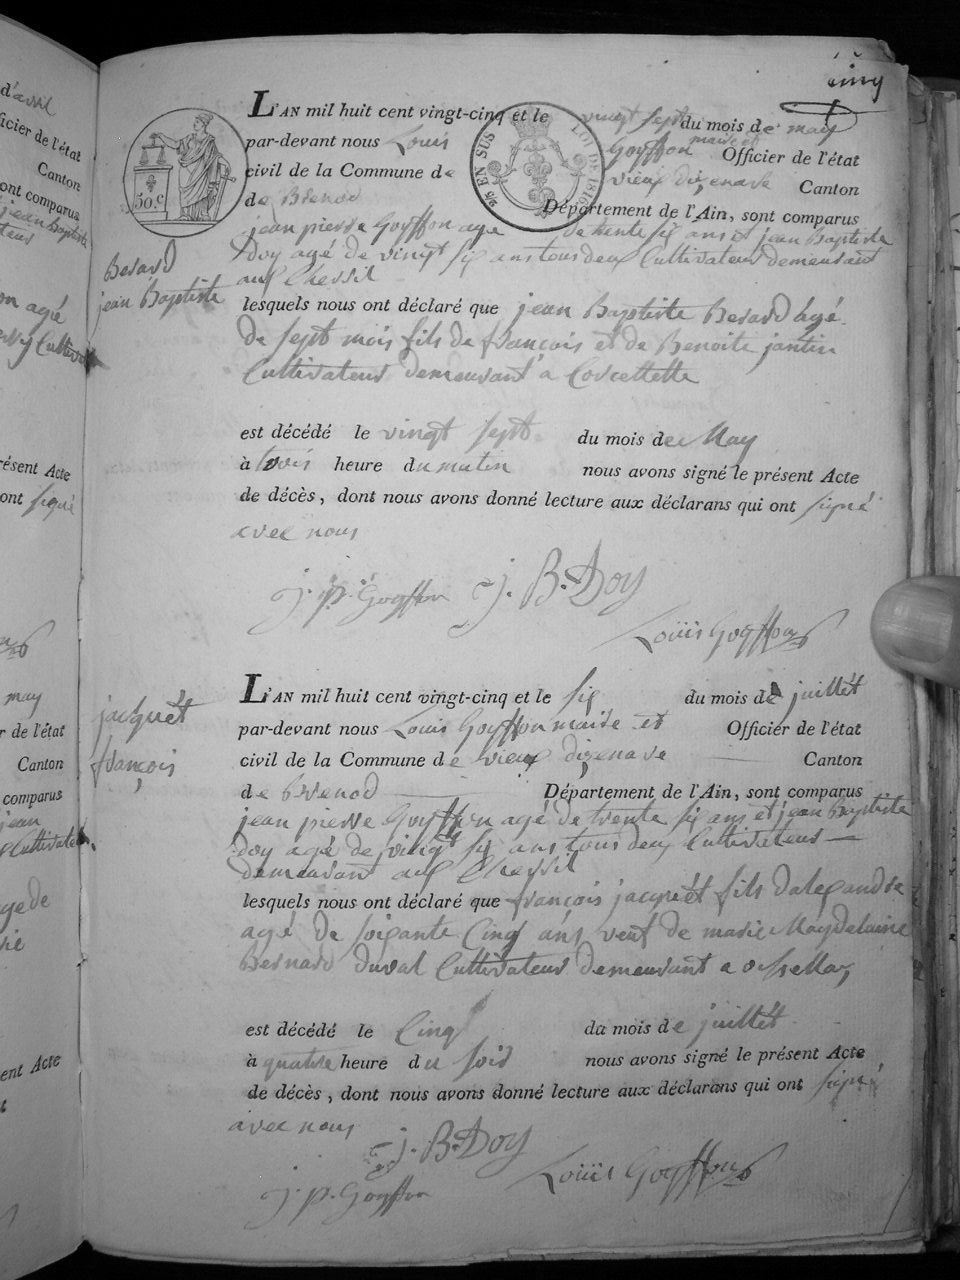 cinq
L'AN mil huit cent vingt-cinq et le vingt sept du mois de may
par-devant nous Louis Goyffon maire et Officier de l'état
civil de la Commune de vieux dizenave Canton
de Brenod Département de l'Ain, sont comparus
jean pierre Goyffon agé de trente six ans et jean Baptiste
Doy agé de vingt six ans tous deux Cultivateurs demeurant
aux Chessil
lesquels nous ont déclaré que jean Baptiste Berard agé
de sept mois fils de françois et de Benoite jantin
Cultivateurs demeurant a Corcellette
est décédé le vingt sept du mois de May
à trois heure du matin nous avons signé le présent Acte
de décès, dont nous avons donné lecture aux déclarans qui ont signé
avec nous
j. p. Goyffon j. B. Doy
Louis Goyffon
Berard
jean Baptiste
50.c
25 EN SUS
LOI DE 1816
L'AN mil huit cent vingt-cinq et le six du mois de juillét
par-devant nous Louis Goyffon maire et Officier de l'état
civil de la Commune de vieux dizenave Canton
de Brenod Département de l'Ain, sont comparus
jean pierre Goyffon agé de trente six ans et jean Baptiste
Doy agé de vingt six ans tous deux Cultivateurs
demeurant aux Chessil
lesquels nous ont déclaré que françois jacquét fils dalexandre
agé de soixante Cinq ans veuf de marie Magdelaine
Bernard duval Cultivateur demeurant a
est décédé le Cinq du mois de juillét
à quatre heure du soir nous avons signé le présent Acte
de décès, dont nous avons donné lecture aux déclarans qui ont signé
avec nous
j. B. Doy
j. p. Goyffon Louis Goyffon
jacquét
françois
d'avril
ficier de l'état
Canton
ont comparus
jean Baptiste
agé
Cultiv
résent Acte
ont signé
may
r de l'état
Canton
comparus
jean
Cultivate
ent Acte